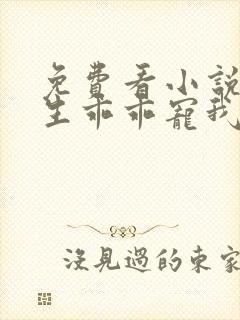 免費看小說
生乖乖寵我
沒見過的東家